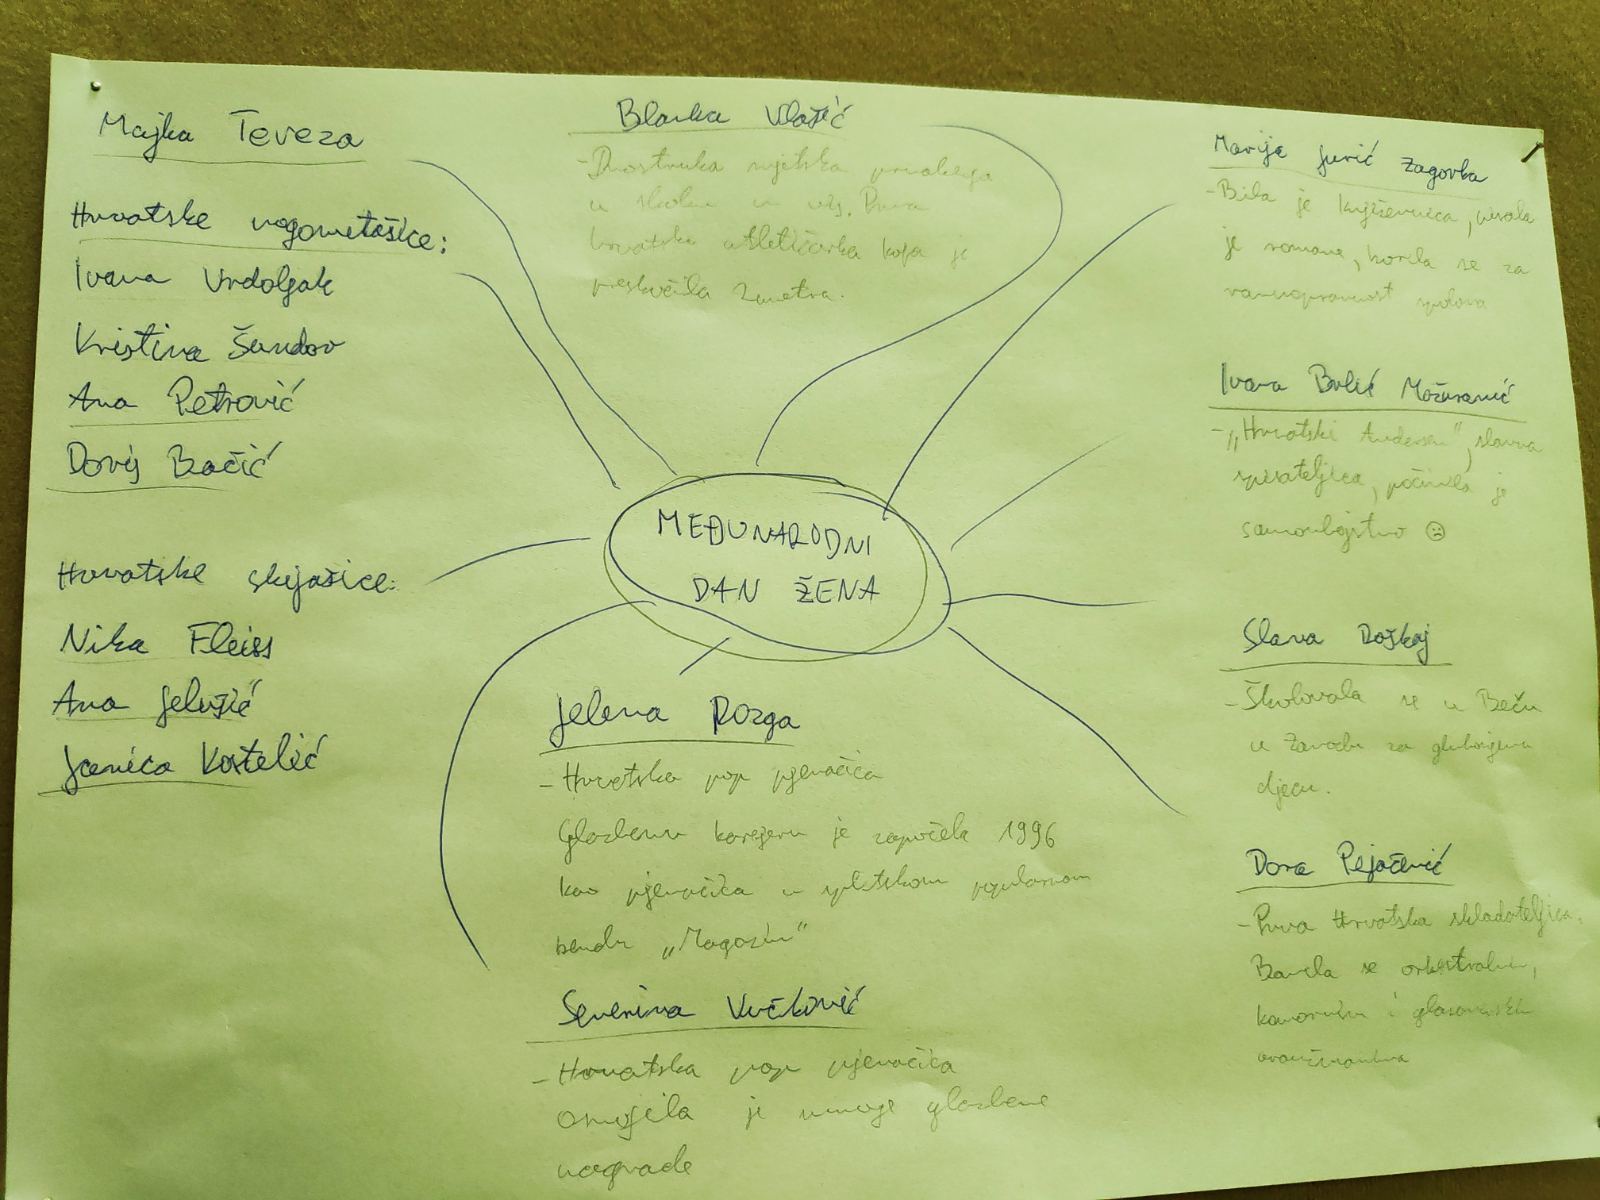 Majka Tereza
Hrvatske nogometašice:
Ivana Vrdoljak
Kristina Šundov
Ana Petrović
Doris Bačić
Hrvatske skijašice:
Nika Fleiss
Ana Jelušić
Janica Kostelić
Blanka Vlašić
- Dvostruka svjetska prvakinja
u skoku u vis. Prva
hrvatska atletičarka koja je
preskočila 2 metra.
MEĐUNARODNI
DAN ŽENA
Jelena Rozga
- Hrvatska pop pjevačica
Glazbenu karijeru je započela 1996
kao pjevačica u splitskom popularnom
bendu „Magazin"
Severina Vučković
- Hrvatska pop pjevačica
osvojila je mnoge glazbene
nagrade
Marija Jurić Zagorka
- Bila je književnica, pisala
je romane, borila se za
ravnopravnost spolova
Ivana Brlić Mažuranić
- „Hrvatski Andersen", slavna
spisateljica, počinila je
samoubojstvo ☹
Slava Raškaj
- Školovala se u Beču
u Zavodu za gluhonijemu
djecu.
Dora Pejačević
- Prva Hrvatska skladateljica.
Bavila se orkestralnim,
komornim i glasovirskim